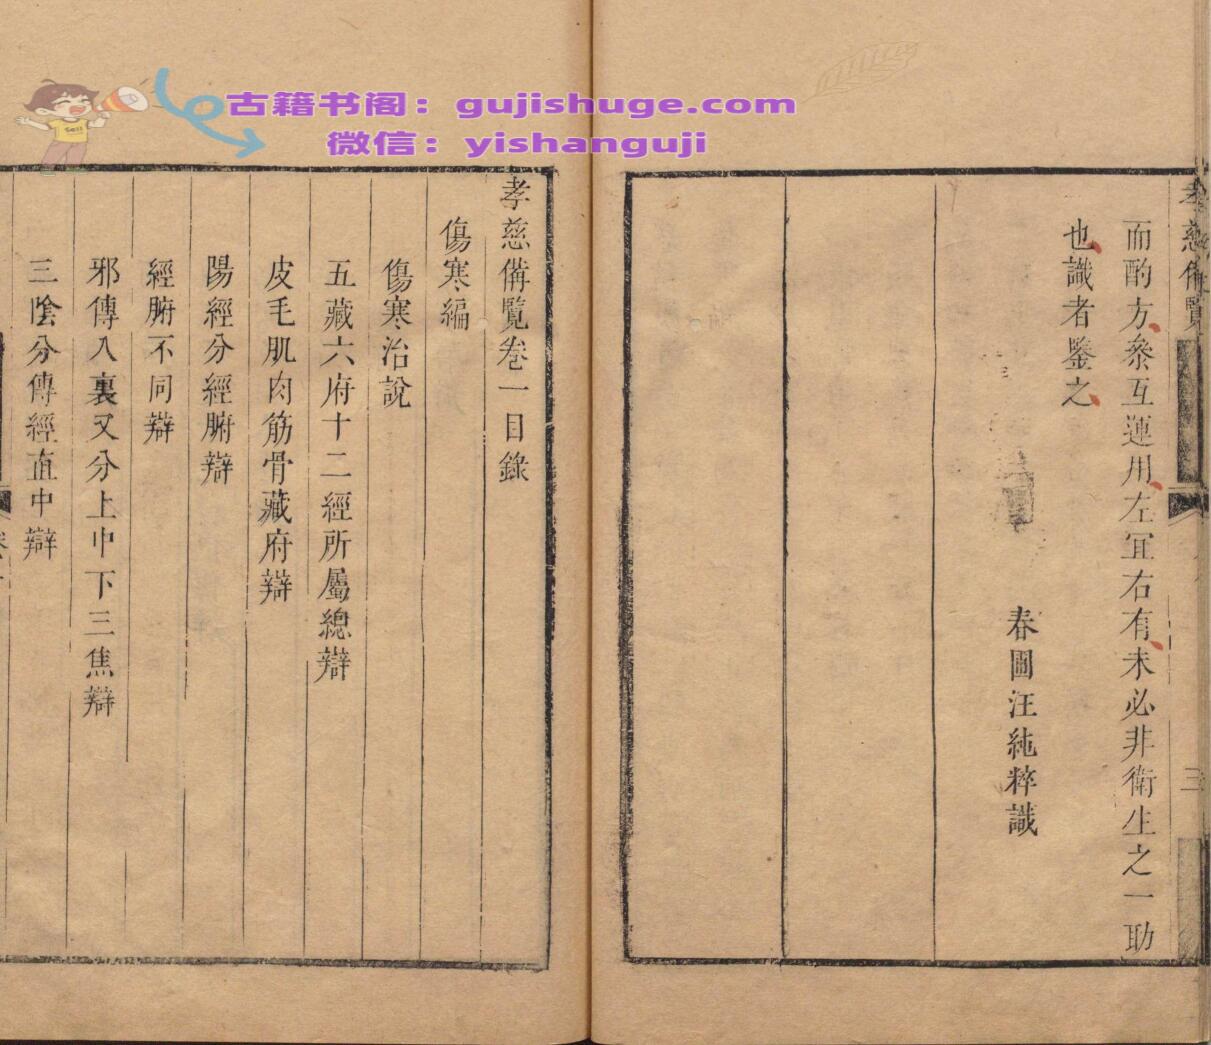 古籍书阁：gujishuge.com
微信：yishanguji
孝慈備覽
三
而酌方叅互運用左宜右有未必非衛生之一助
也識者鑒之
春圃汪純粹識
孝慈備覽卷一目錄
傷寒編
傷寒治說
五藏六府十二經所屬總辯
皮毛肌肉筋骨藏府辯
陽經分經腑辯
經腑不同辯
邪傳入裏又分上中下三焦辯
三陰分傳經直中辯